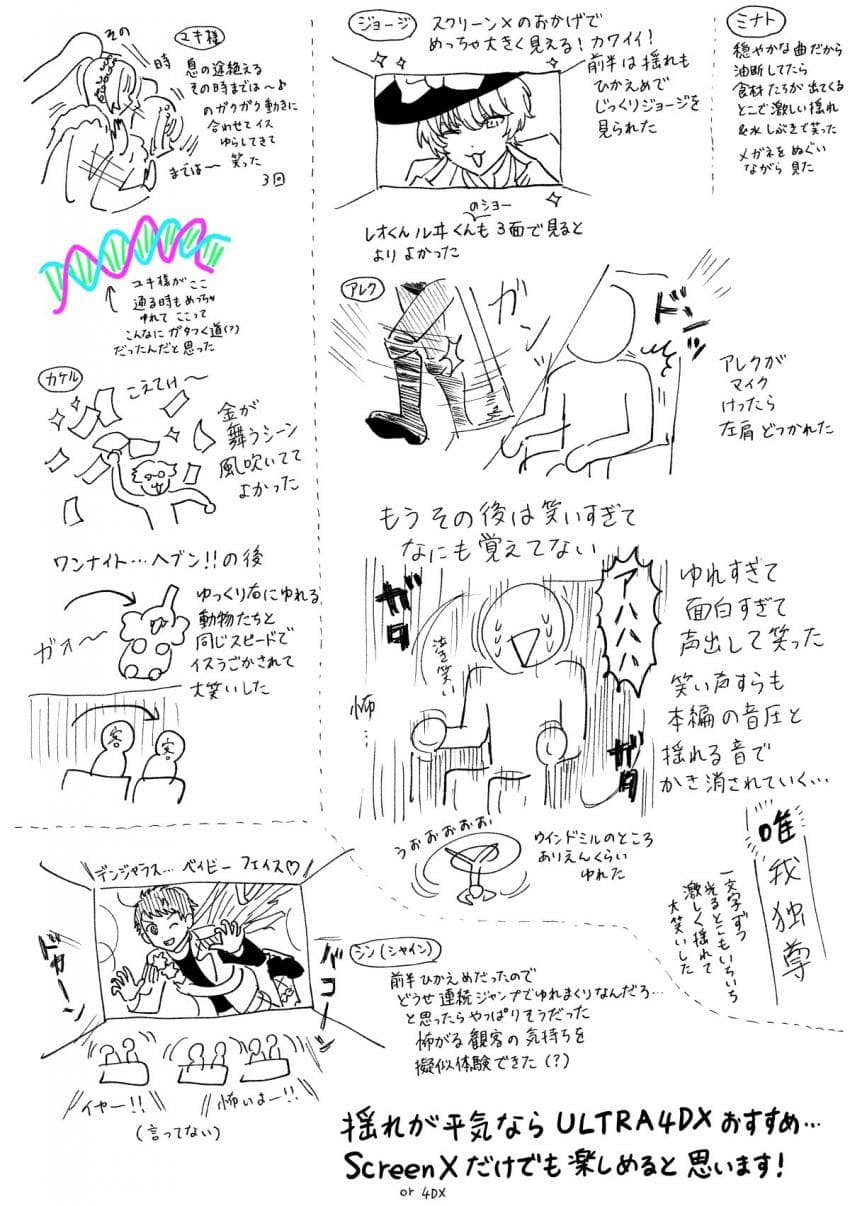 ユキ様
その
時
息の途絶える
その時までは〜♪
のガクガク動きに
合わせてイス
ゆらしてきて
笑った
までは〜
3回
ユキ様がここ
通る時もめっちゃ
ゆれて ここって
こんなに ガタつく道(?)
だったんだと思った
カケル
こえてけ〜
金が
舞うシーン
風吹いてて
よかった
ワンナイト…ヘブン!!の後
ガオ〜
ゆっくり右にゆれる
動物たちと
同じスピードで
イスうごかされて
大笑いした
客
客
ジョージ
スクリーンXのおかげで
めっちゃ大きく見える!カワイイ!
前半は揺れも
ひかえめで
じっくりジョージを
見られた
のショー
レオくんルヰくんも3面で見ると
よりよかった
ミナト
穏やかな曲だから
油断してたら
食材たちが出てくる
とこで激しい揺れ
&水しぶきで笑った
メガネをぬぐい
ながら見た
アレク
ガンッ
ドンッ
アレクが
マイク
けったら
左肩どつかれた
もうその後は笑いすぎて
なにも覚えてない
ガタ
泣き笑い
アハハハ
怖…
ガタ
ゆれすぎて
面白すぎて
声出して笑った
笑い声すらも
本編の音圧と
揺れる音で
かき消されていく…
うおおおおお
ウインドミルのところ
ありえんくらい
ゆれた
唯我独尊
一文字ずつ
光るとこもいちいち
激しく揺れて
大笑いした
デンジャラス… ベイビーフェイス♡
ドカーン
バコーン
イヤー!!
怖いよー!!
(言ってない)
シン(シャイン)
前半ひかえめだったので
どうせ連続ジャンプでゆれまくりなんだろ…
と思ったらやっぱりそうだった
怖がる観客の気持ちを
擬似体験できた(?)
揺れが平気ならULTRA4DXおすすめ…
ScreenXだけでも楽しめると思います!
or 4DX